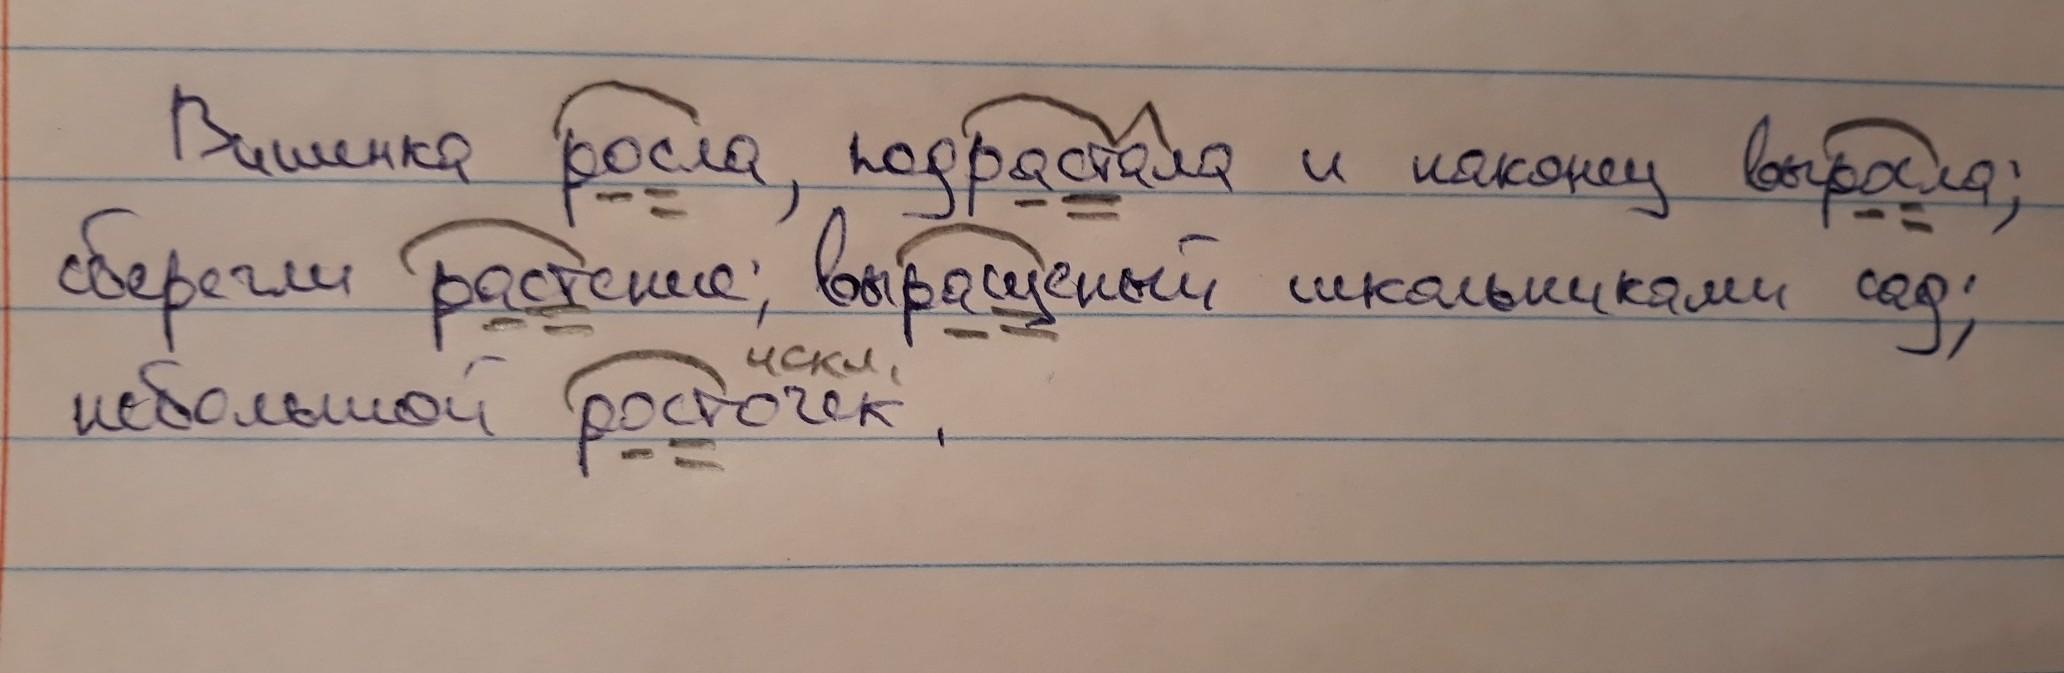 Вишенка росла, подрастала и наконец выросла;
сберегли растение; выращеный школьниками сад;
искл.
небольшой росточек.